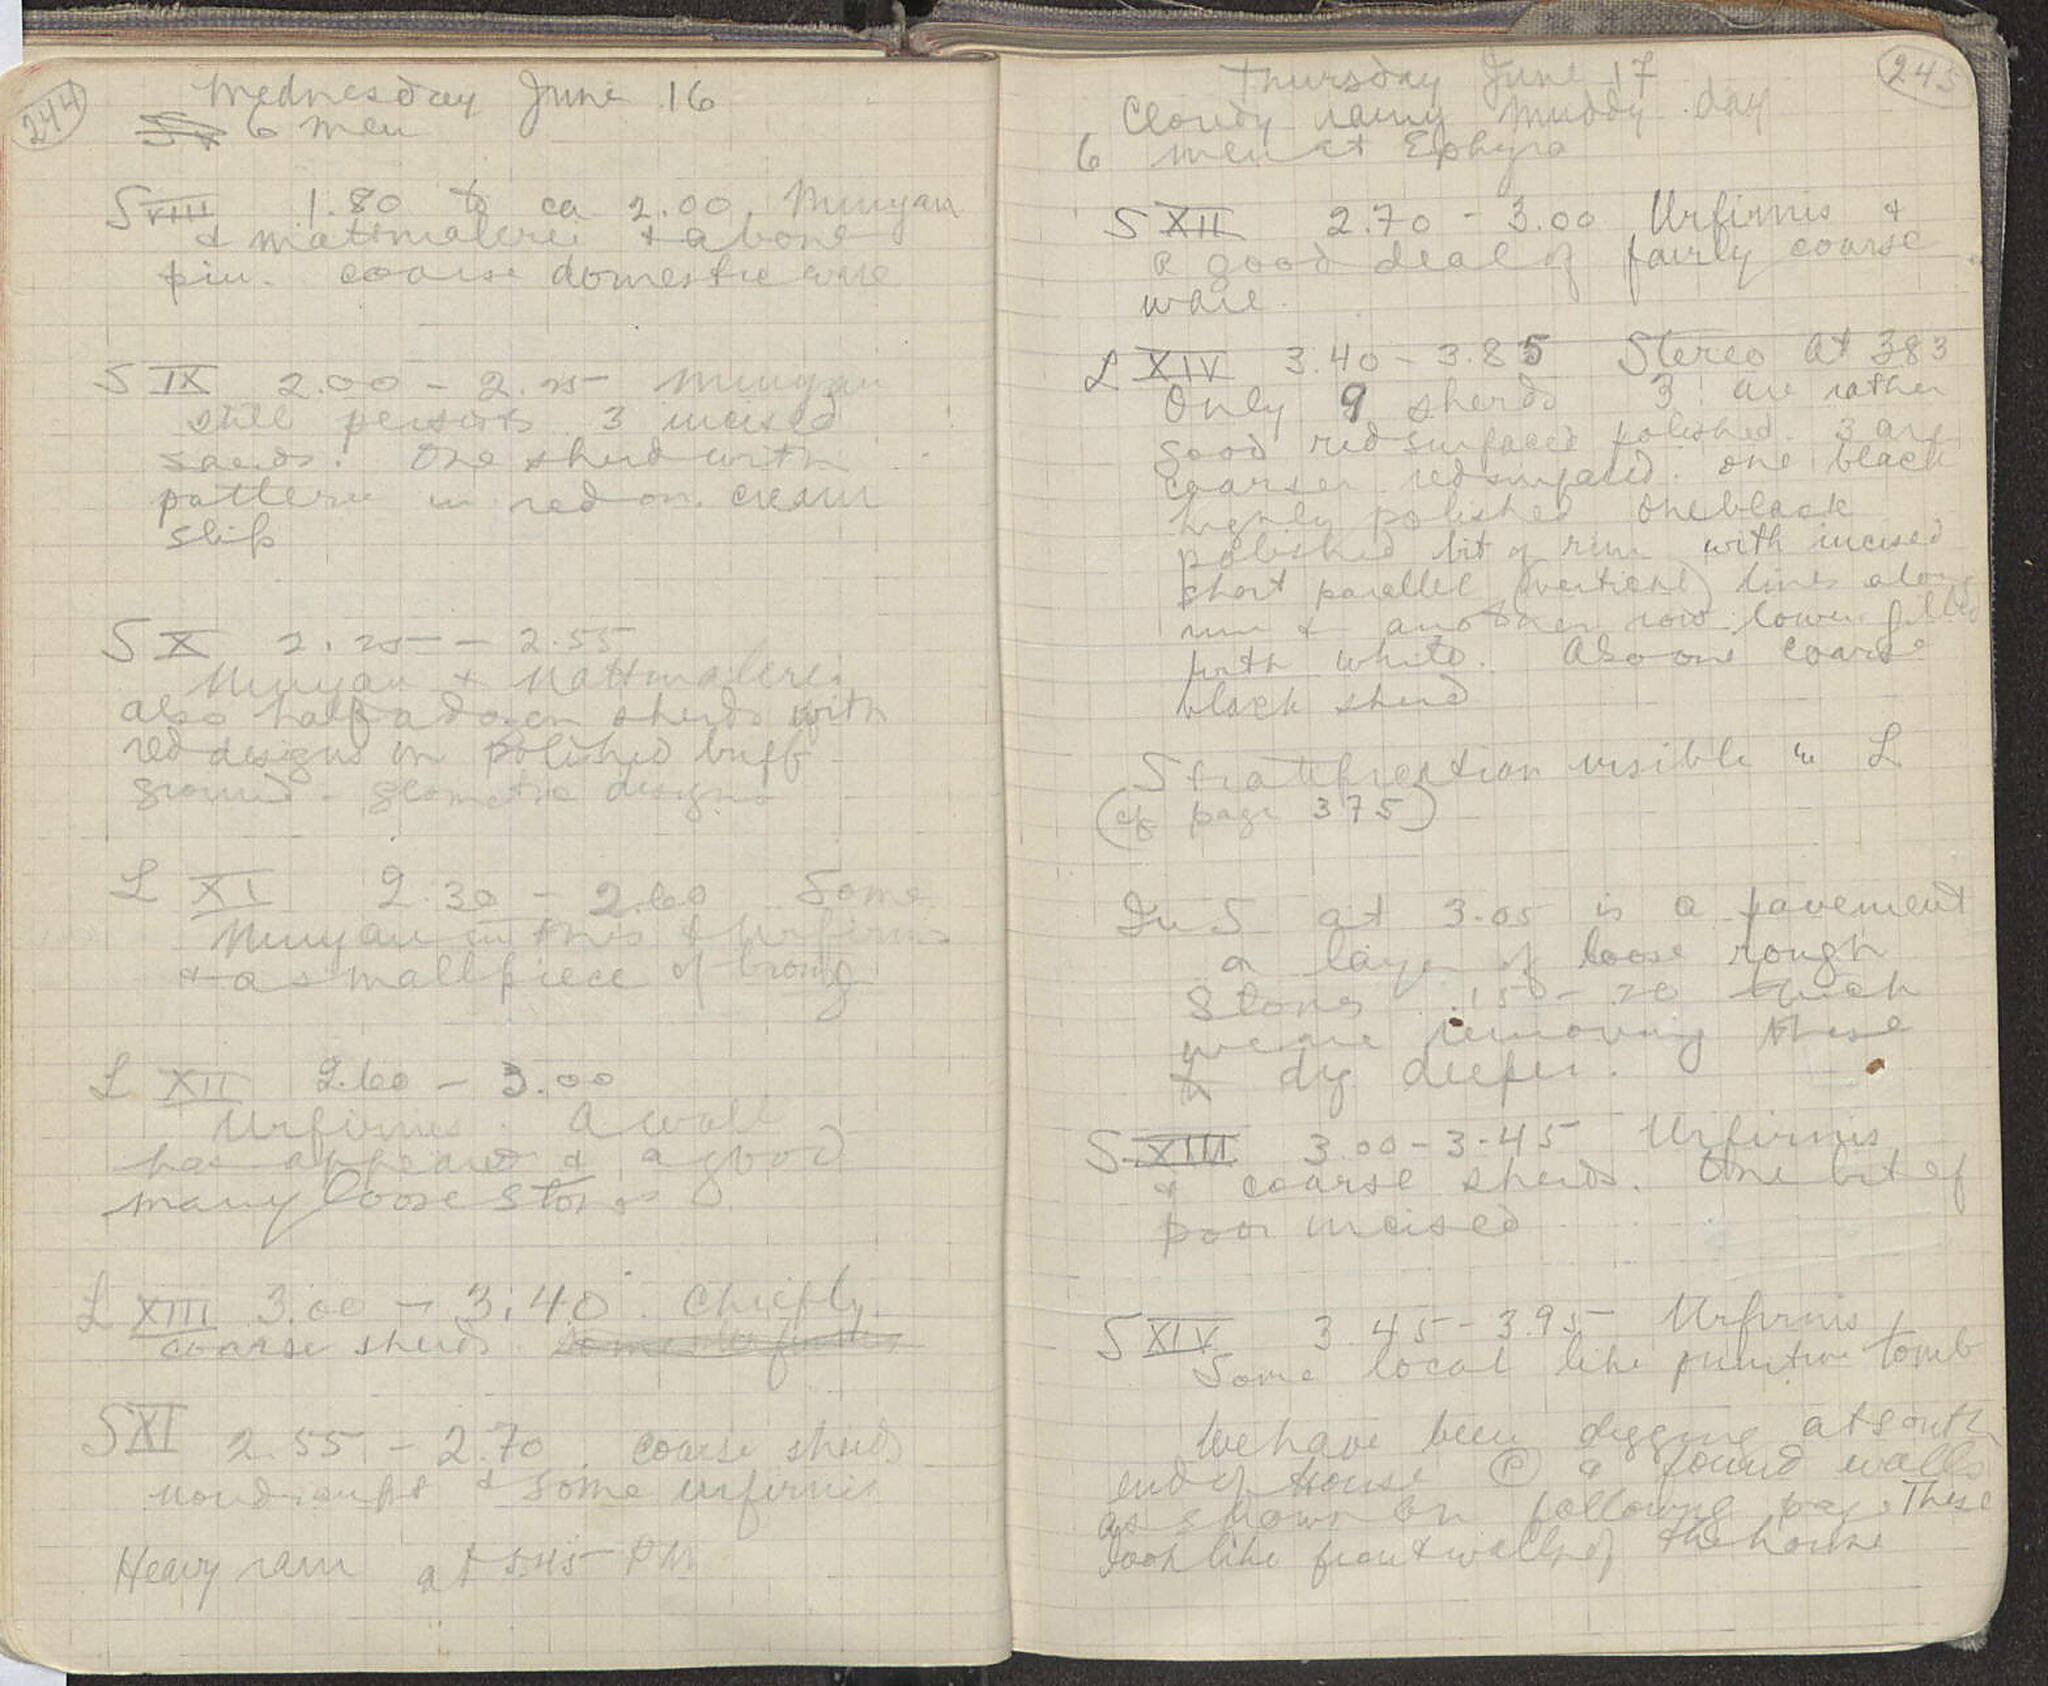 244
Wednesday June 16
6 men
S VIII 1.80 to ca 2.00. Minyan
& mattmalerei & a bone
pin. coarse domestic ware
S IX 2.00 - 2.25 Minyan
still persists 3 incised
sherds. One sherd with
pattern in red on cream
slip
S X 2.25 - 2.55
Minyan & Mattmalerei
also half a dozen sherds with
red designs on polished buff
ground - geometric designs
L XI 2.30 - 2.60 Some
Minyan in this & Urfirnis
& a small piece of bronze
L XII 2.60 - 3.00
Urfirnis. A wall
has appeared & a good
many loose stones
L XIII 3.00 - 3.40. Chiefly
coarse sherds. Some Urfirnis
S XI 2.55 - 2.70 coarse sherds
nondescript & some urfirnis
Heavy rain at 5.45 P.M.
245
Thursday June 17
Cloudy rainy muddy day
6 men at Ephyra
S XII 2.70 - 3.00 Urfirnis &
a good deal of fairly coarse
ware.
L XIV 3.40 - 3.85 Stereo at 383
Only 9 sherds 3 are rather
good red surfaced polished. 3 are
coarser red surfaced. one black
highly polished one black
polished bit of rim with incised
short parallel (vertical) lines along
rim & another row lower filled
with white. Also one coarse
black sherd
Stratification visible in L
(cf page 375)
In S at 3.05 is a pavement
a layer of loose rough
stones .15 - .20 thick
we are removing these
to dig deeper.
S XIII 3.00 - 3.45 Urfirnis
& coarse sherds. One bit of
poor incised
S XIV 3.45 - 3.95 Urfirnis
Some local like primitive tomb
We have been digging at south
end of House P & found walls
as shown on following page. These
look like front walls of the house